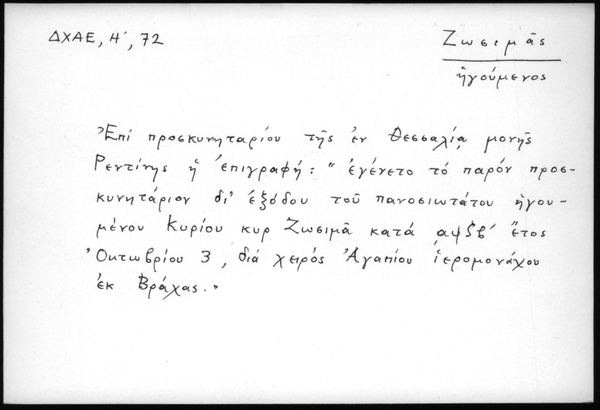 ΔΧΑΕ, Η΄, 72
Ζωσιμᾶς
ἡγούμενος
Ἐπί προσκυνηταρίου τῆς ἐν Θεσσαλίᾳ μονῆς
Ρεντίνης ἡ ἐπιγραφή: "ἐγένετο τό παρόν προσ-
κυνητάριον δι' ἐξόδου τοῦ πανοσιωτάτου ἡγου-
μένου Κυρίου κυρ Ζωσιμᾶ κατά ͵αψζβ΄ ἔτος
Ὀκτωβρίου 3, διά χειρός Ἀγαπίου ἱερομονάχου
ἐκ Βράχας."